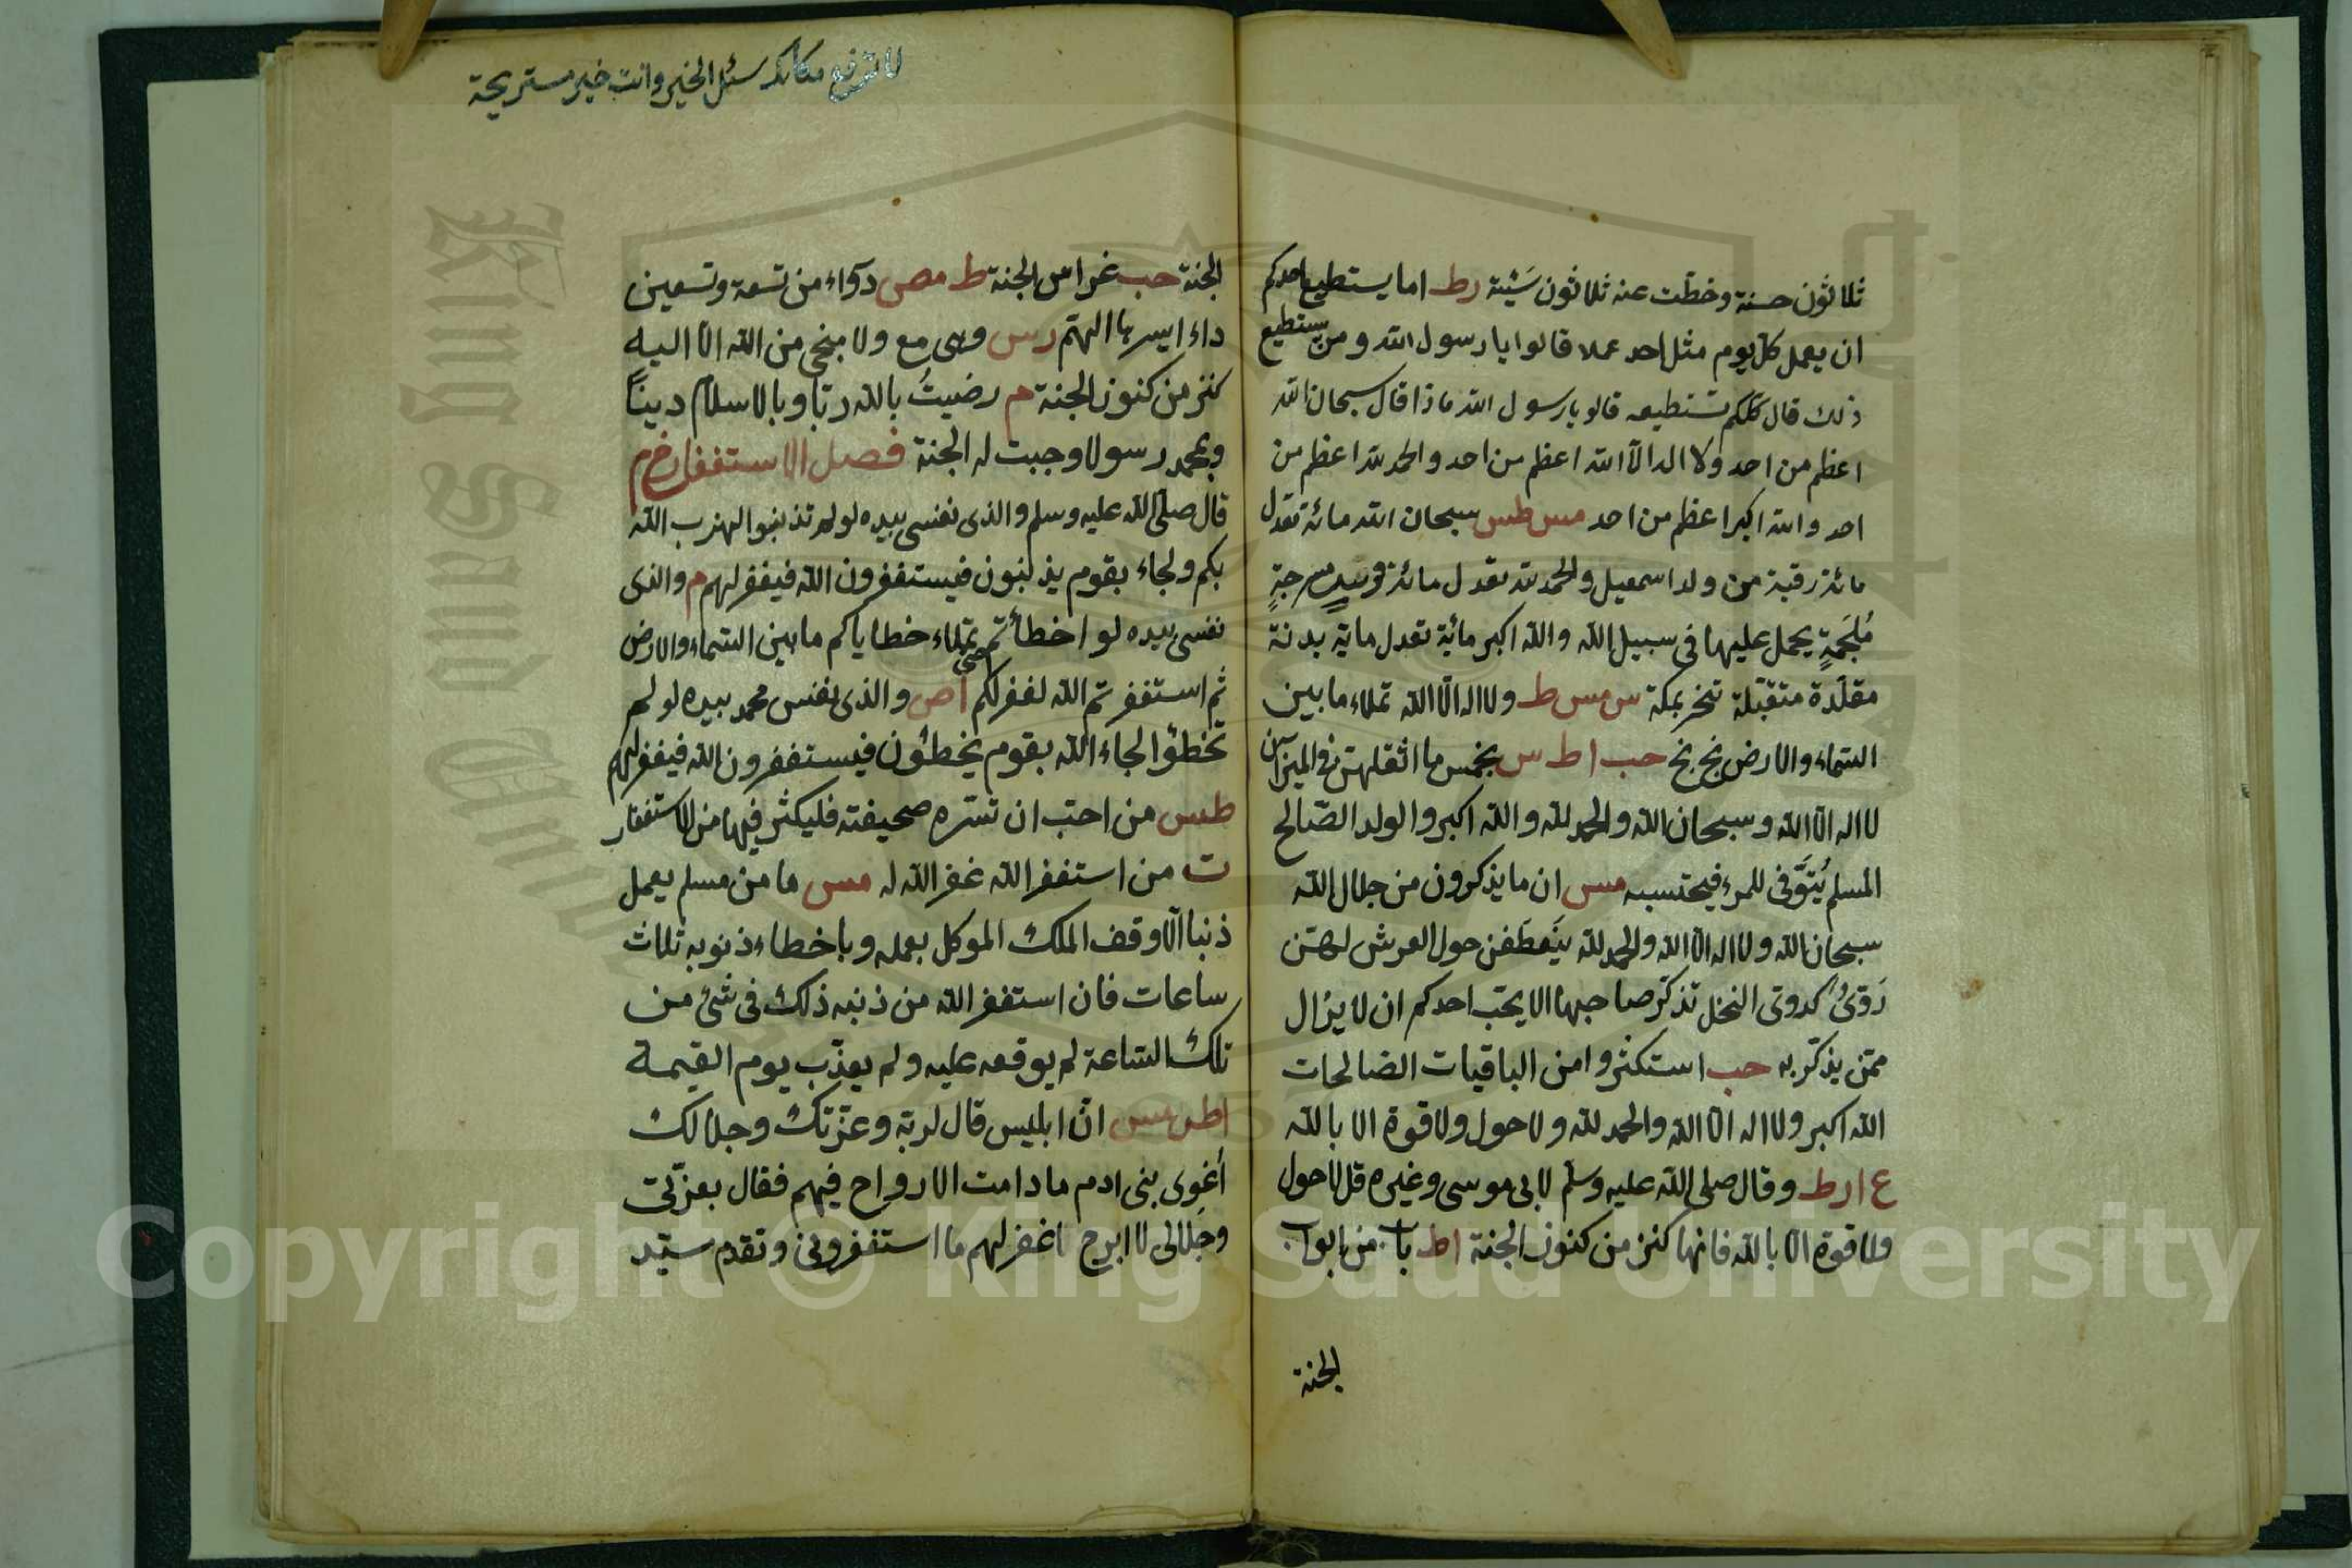 ثلاثون حسنة وخطّت عنه ثلاثون سَيّئة رط اما يستطيع احدكم
ان يعمل كلّ يوم مثل احد عملا قالوا يا رسول الله ومن يستطيع
ذلك قال كلّكم تستطيعه قالو يا رسول الله ماذا قال سبحان الله
اعظم من احد ولا اله الّا الله اعظم من احد والحمد لله اعظم من
احد والله اكبر اعظم من احد مس طس سبحان الله مائة تعدل
مائة رقبة من ولد اسمعيل والحمد لله تعدل مائة فرسٍ مسرجةٍ
مُلجَمةٍ يحمل عليها فى سبيل الله والله اكبر مائة تعدل ماية بدنة
مقلّدة متقبّلة تنحر بمكة س مس ط ولا اله الّا الله تملاء ما بين
السّماء والارض بخ بخ حب اط س بخمس ما اثقلهنّ فى الميزان
لا اله الّا الله وسبحان الله والحمد لله والله اكبر والولد الصّالح
المسلم يُتَوَفّى للمرء فيحتسبه مس ان ما يذكرون من جلال الله
سبحان الله ولا اله الّا الله والحمد لله يَنعَطَفن حول العرش لهنّ
دَوِىٌّ كدوىّ النحل تذكّر صاحبها الا يحبّ احدكم ان لا يزال
ممّن يذكّر به حب استكثروا من الباقيات الصّالحات
الله اكبر ولا اله الّا الله والحمد لله ولا حول ولا قوة الا بالله
ع ا رط وقال صلى الله عليه وسلّم لابى موسى وغيره قل لا حول
ولا قوة الّا بالله فانها كنز من كنوز الجنة اط باب من ابواب
الجنة
لا ترفع سئل الخير وانت خير مستريحة
الجنة حب غراس الجنة ط مص دوآء من تسعة وتسعين
داء ايسرها الهمّ رس وهى مع ولا منجى من الله الّا اليه
كنز من كنوز الجنة م رضيتُ بالله ربّا وبالاسلام ديناً
وبمحمد رسولا وجبت له الجنة فصل الاستغفار م
قال صلّى الله عليه وسلم والذى نفسى بيده لو لم تذنبوا لهذب الله
بكم ولجاء بقوم يذنبون فيستغفرون الله فيغفر لهم م والذى
نفسى بيده لو اخطأتم حتى تملاء خطاياكم ما بين السّماء والارض
ثم استغفرتم الله لغفر لكم اص والذى نفس محمد بيده لو لم
تخطؤا لجاء الله بقوم يخطئون فيستغفرون الله فيغفر لهم
طس من احبّ ان تسّره صحيفته فليكثر فيها من الاستغفار
ت من استغفر الله غفر الله له مس ما من مسلم يعمل
ذنبا الّا وقف الملك الموكل بعمله وباخطاء ذنوبه ثلاث
ساعات فان استغفر الله من ذنبه ذلك فى شئ من
تلك السّاعة لم يوقعه عليه ولم يعذّب يوم القيمة
اط مس انّ ابليس قال لربّه وعزّتك وجلالك
أغوِى بنى ادم ما دامت الارواح فيهم فقال بعزّتى
وجلالى لا ابرح اغفر لهم ما استغفرونى وتقدم سيّد
King Saud University
Copyright © King Saud University